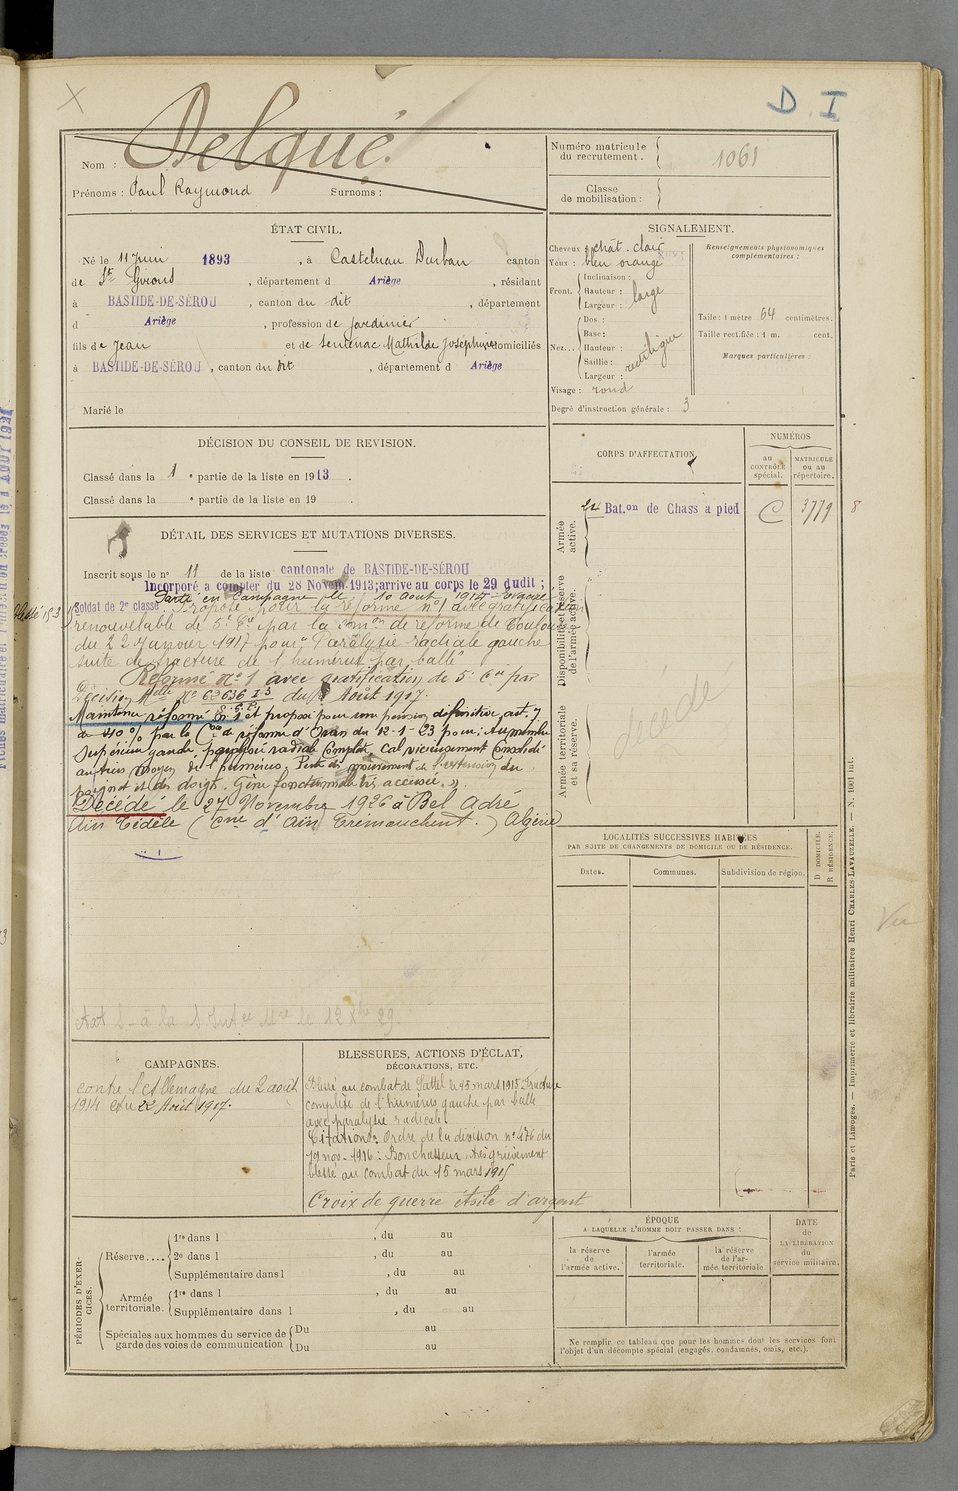 D. I
Nom : Delqué
Prénoms : Paul Raymond Surnoms :
Numéro matricule du recrutement. 1061
Classe de mobilisation :
ÉTAT CIVIL.
Né le 11 Juin 1893, à Castelnau Durban canton
de St Girons, département d Ariège, résidant
à BASTIDE-DE-SÉROU, canton du dit, département
d Ariège, profession de Jardinier
fils de Jean et de Sentenac Mathilde Joséphine domiciliés
à BASTIDE-DE-SÉROU, canton du dit, département d Ariège
Marié le
SIGNALEMENT.
Cheveux chât-clair
Yeux : bleu orangé
Front. Inclinaison :
Hauteur : large
Largeur :
Nez... Dos :
Base :
Hauteur : rectiligne
Saillie :
Largeur :
Visage : rond
Degré d'instruction générale : 3
Renseignements physionomiques complémentaires :
Taille : 1 mètre 64 centimètres.
Taille rectifiée : 1 m. cent.
Marques particulières :
DÉCISION DU CONSEIL DE REVISION.
Classé dans la 1e partie de la liste en 1913.
Classé dans la e partie de la liste en 19 .
CORPS D'AFFECTATION.
NUMÉROS
au CONTRÔLE spécial.
MATRICULE ou au répertoire.
Armée active.
24 Bat.on de Chass à pied C 3779 8
Disponibilité et réserve de l'armée active.
Armée territoriale et sa réserve.
décédé
DÉTAIL DES SERVICES ET MUTATIONS DIVERSES.
Inscrit sous le no 11 de la liste cantonale de BASTIDE-DE-SÉROU
Incorporé à compter du 28 Novem.1913;arrive au corps le 29 dudit ;
Parti en Campagne le 10 août 1914
Soldat de 2e classe. Proposé pour la réforme no 1 avec gratification
renouvelable de 5e Cie par la Comon de réforme de Toulouse
du 22 Janvier 1917 pour "Paralysie radiale gauche
suite de fracture de l'humérus par balle"
Réformé No 1 avec gratification de 5e Cie par
Décision Mlle No 63636 I3 du Août 1917.
Maintenu réformé no 1 et proposé pour une pension définitive, art. 7
de 40 % par la Con de réforme d'Oran du 12-1-23 pour : Au membre
supérieur gauche paralysie radiale complète, cal vicieusement consolidé
au tiers moyen de l'humérus. Perte des mouvements de l'extension du
poignet et des doigts. Gêne fonctionnelle très accusée."
Décédé le 27 Novembre 1926 à Bel Adré
Ain Tédélé (Cne d'Ain Trémouchent.) Algérie
LOCALITÉS SUCCESSIVES HABITÉES
PAR SUITE DE CHANGEMENTS DE DOMICILE OU DE RÉSIDENCE.
Dates. Communes. Subdivision de région. D DOMICILE. R RÉSIDENCE.
Vu
CAMPAGNES.
contre l'Allemagne du 2 août
1914 au 22 Août 1917.
BLESSURES, ACTIONS D'ÉCLAT,
DÉCORATIONS, ETC.
Blessé au combat de le 15 mars 1915 Fracture
complète de l'humérus gauche par balle
avec paralysie radiale.
Citation : Ordre de la division no 476 du
19 nov. 1916 : Bon chasseur, très grièvement
blessé au combat du 15 mars 1915
Croix de guerre étoile d'argent
PÉRIODES D'EXERCICES.
Réserve.... 1re dans l , du au
2e dans l , du au
Supplémentaire dans l , du au
Armée territoriale. 1re dans l , du au
Supplémentaire dans l , du au
Spéciales aux hommes du service de garde des voies de communication Du au
Du au
ÉPOQUE
A LAQUELLE L'HOMME DOIT PASSER DANS :
la réserve de l'armée active.
l'armée territoriale.
la réserve de l'armée territoriale
DATE de LA LIBÉRATION du service militaire.
Ne remplir ce tableau que pour les hommes dont les services font
l'objet d'un décompte spécial (engagés, condamnés, omis, etc.).
Paris et Limoges. — Imprimerie et librairie militaires Henri CHARLES-LAVAUZELLE. — N. 1001 int.